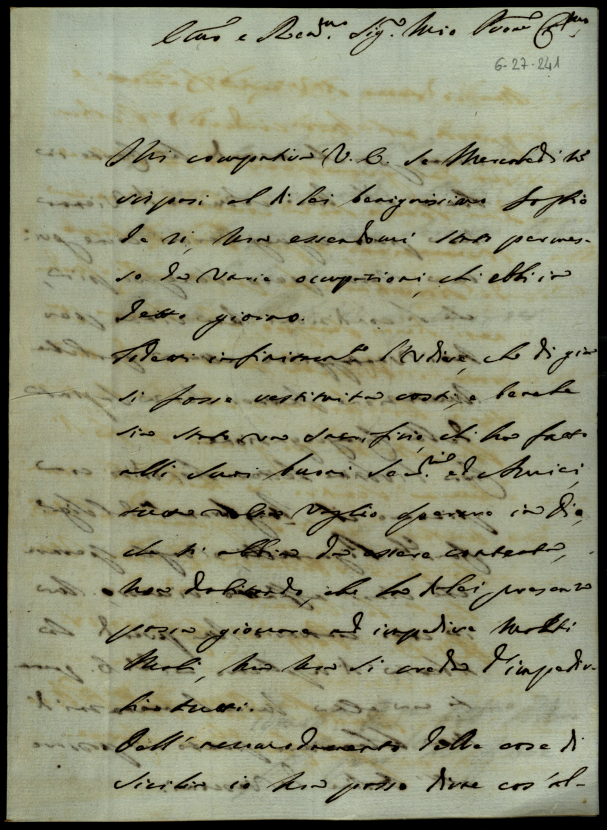 e Rev.mo Sig.r Mio Pron.
6-27-241
Mi compatirà V. E. se Mercoledì non
risposi al di lei benignissimo foglio
de 21, non essendomi stato permes-
so da varie occupazioni, che ebbi in
detto giorno.
infinitamente l'udire, che di già
si fosse restituita costì, e benchè
sia stato un sacrificio, che ha fatto
alli suoi buoni ed Amici,
tutta volta voglio sperare in Dio,
che ne abbia da essere contenta,
non dubitando, che la di lei presenza
possa giovare ad impedire molti
mali, ma non si creda d'impedir-
li tutti.
Dell' delle cose di
Sicilia io non posso dirne cos'al-